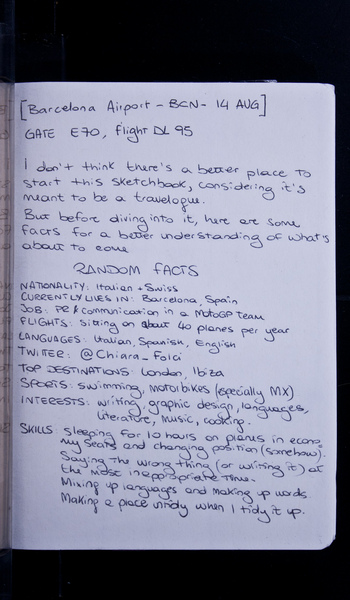 [Barcelona Airport - BCN - 14 AUG]
GATE E70, flight DL 95
I don't think there's a better place to
start this sketchbook, considering it's
meant to be a travelogue.
But before diving into it, here are some
facts for a better understanding of what's
about to come
RANDOM FACTS
NATIONALITY: Italian + Swiss
CURRENTLY LIVES IN: Barcelona, Spain
JOB: PR & communication in a MotoGP team
FLIGHTS: Sitting on about 40 planes per year
LANGUAGES: Italian, Spanish, English
TWITTER: @Chiara_Folci
TOP DESTINATIONS: London, Ibiza
SPORTS: swimming, motorbikes (especially MX)
INTERESTS: writing, graphic design, languages,
literature, music, cooking.
SKILLS: Sleeping for 10 hours on planes in econo
my seats and changing position (somehow).
Saying the wrong thing (or writing it) at
the most inappropriate time.
Mixing up languages and making up words.
Making a place untidy when I tidy it up.